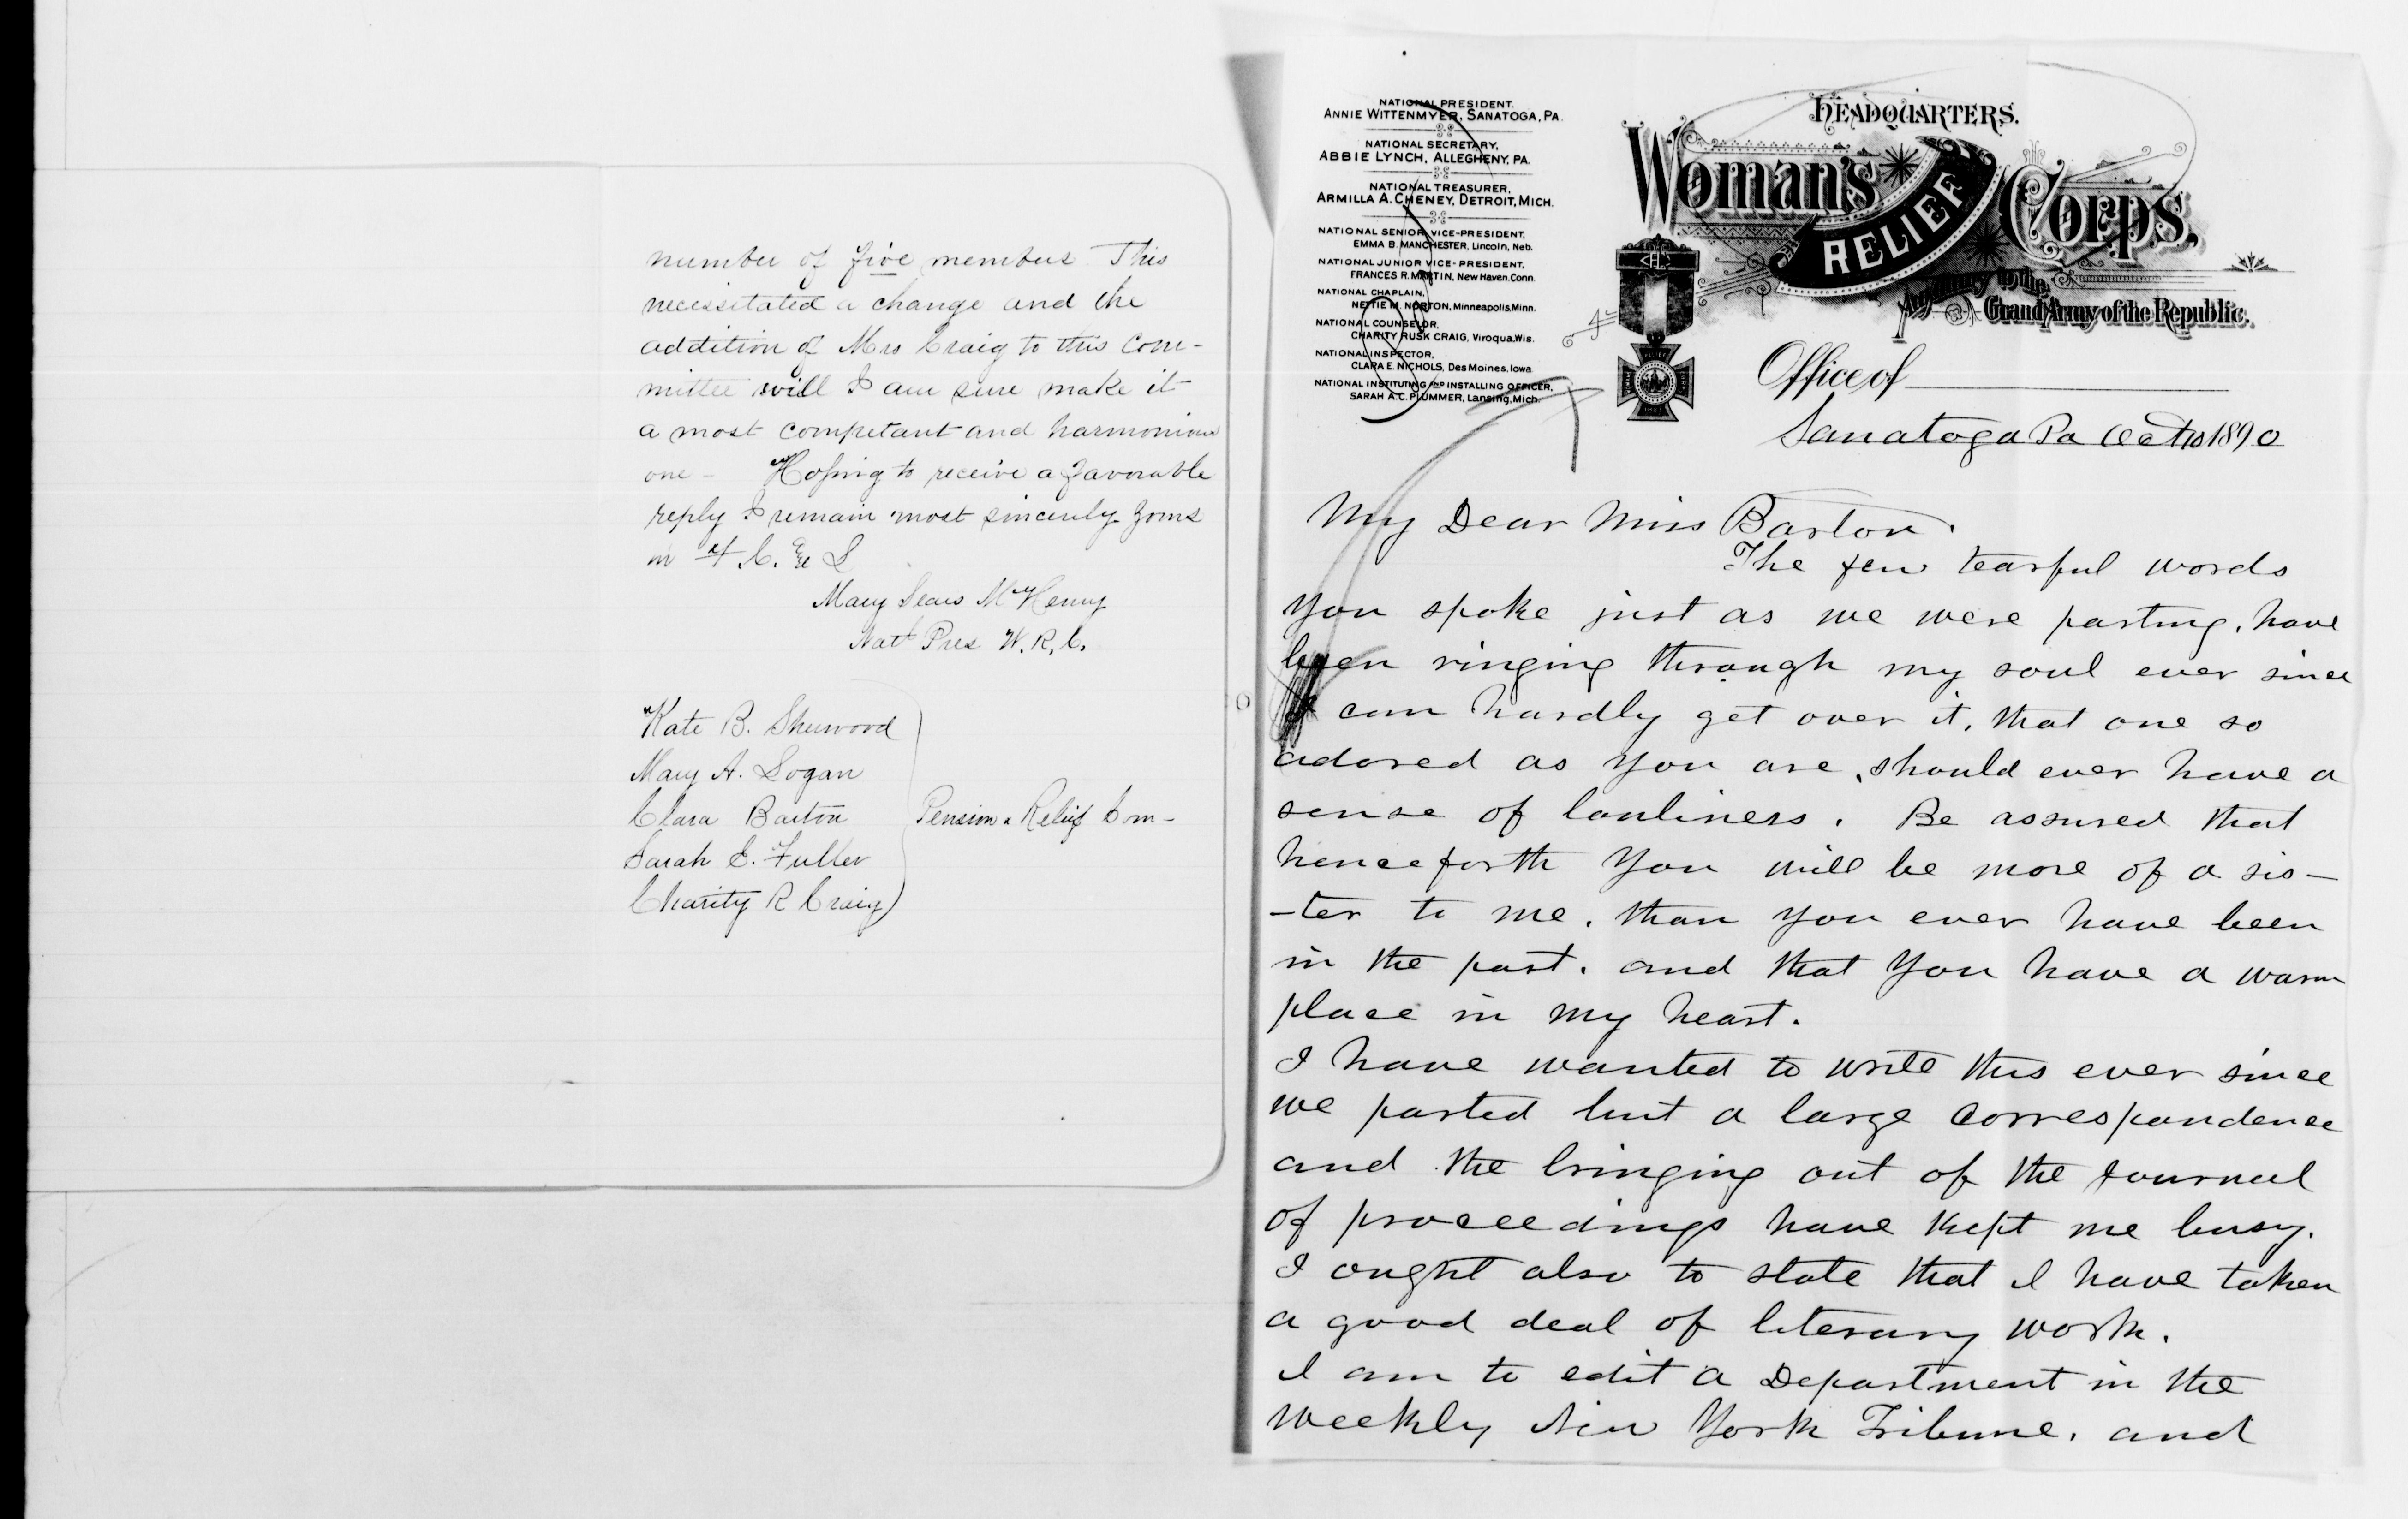 number of five members This
necessitated a change and the
addition of Mrs Craig to this Com-
mittee will I am sure make it
a most competant and harmonious
one - Hoping to receive a favorable
reply I remain most sincerely yours
in F. C. & L
Mary Sears McHenry
Nat Pres W. R. C.
Kate B. Sherwood
Mary A. Logan
Clara Barton
Pension & Relief Com-
Sarah E. Fuller
Charity R Craig
NATIONAL PRESIDENT.
ANNIE WITTENMYER, SANATOGA, PA.
NATIONAL SECRETARY,
ABBIE LYNCH, ALLEGHENY, PA.
NATIONAL TREASURER,
ARMILLA A. CHENEY, DETROIT, MICH.
NATIONAL SENIOR VICE-PRESIDENT,
EMMA B. MANCHESTER, Lincoln, Neb.
NATIONAL JUNIOR VICE-PRESIDENT,
FRANCES R. MARTIN, New Haven, Conn.
NATIONAL CHAPLAIN,
NETTIE M. NORTON, Minneapolis, Minn.
NATIONAL COUNSELOR,
CHARITY RUSK CRAIG, Viroqua, Wis.
NATIONAL INSPECTOR,
CLARA E. NICHOLS, Des Moines, Iowa.
NATIONAL INSTITUTING AND INSTALLING OFFICER,
SARAH A.C. PLUMMER, Lansing, Mich.
HEADQUARTERS.
Woman's RELIEF Corps,
Auxiliary to the
Grand Army of the Republic.
Office of
Sanatoga Pa Oct 10 1890
My Dear Miss Barton.
The few tearful words
you spoke just as we were parting, have
been ringing through my soul ever since
I can hardly get over it, that one so
adored as you are, should ever have a
sense of lonliness. Be assured that
henceforth you will be more of a sis-
-ter to me, than you ever have been
in the past, and that you have a warm
place in my heart.
I have wanted to write this ever since
we parted but a large correspondence
and the bringing out of the Journal
of proceedings have kept me busy.
I ought also to state that I have taken
a good deal of literary work.
I am to edit a Department in the
weekly New York Tribune, and